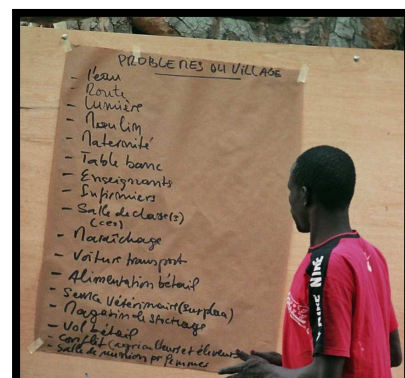 PROBLEMES DU VILLAGE
- l'eau
- Route
- Lumière
- Moulin
- Maternité
- Table banc
- Enseignants
- Infirmiers
- Salle de classe(s)
(CEG)
- Maraîchage
- Voiture transport
- Alimentation bétail
- Service Vétérinaire (sur place)
- Magasin de stockage
- Vol bétail
- Conflit (agriculteurs et éleveurs)
- Salle de réunion pr femmes
NIKE